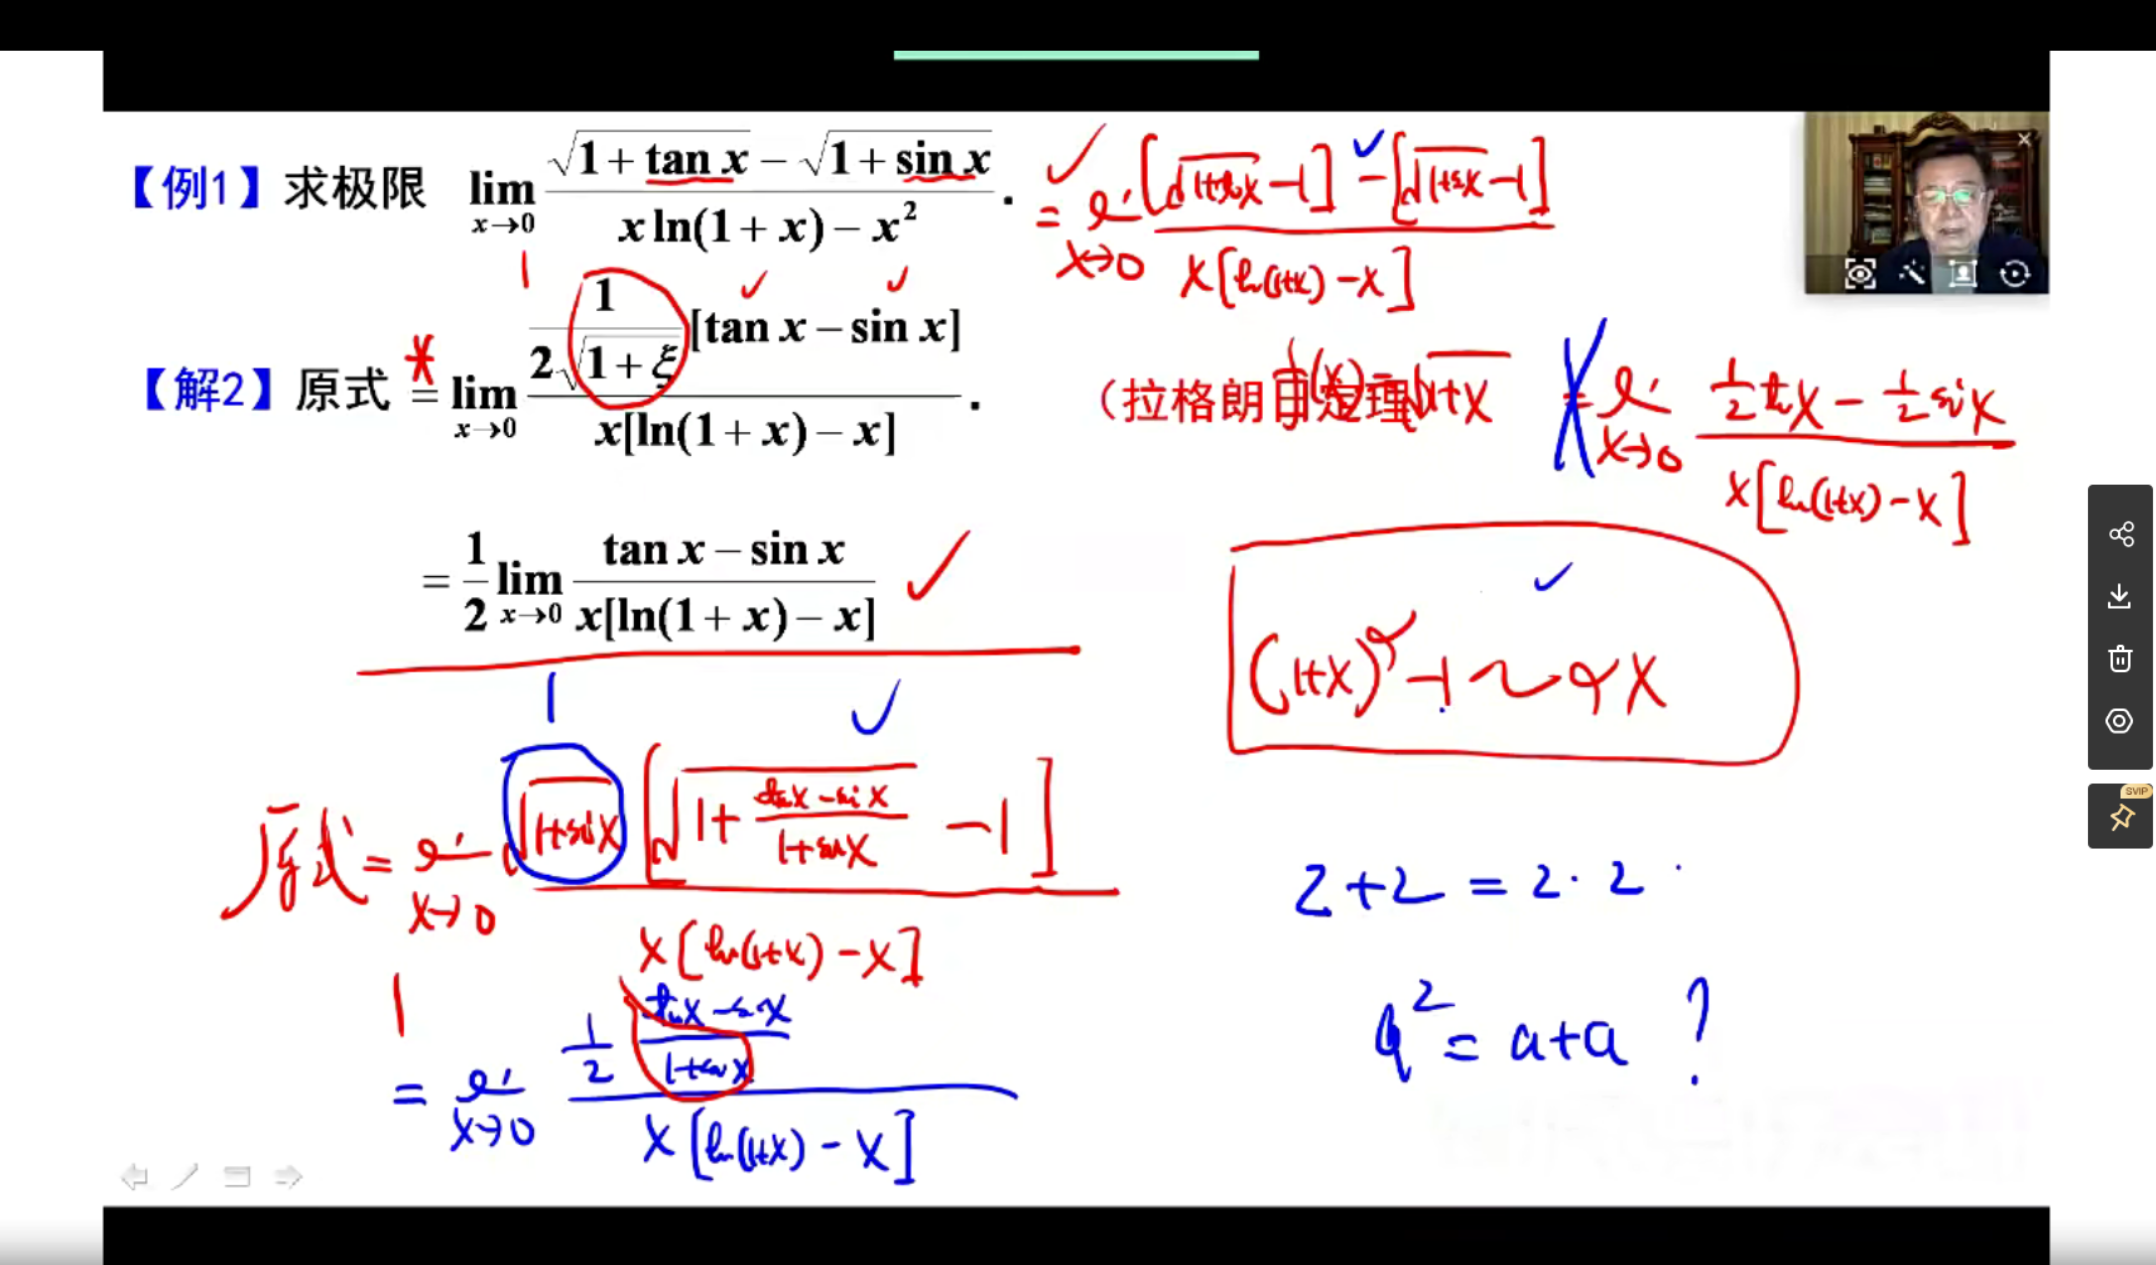 【例1】求极限 lim x→0 (√(1+tan x) − √(1+sin x)) / (x ln(1+x) − x²) .
= lim x→0 ([√(1+tan x) −1] − [√(1+sin x) −1]) / (x[ln(1+x) −x])
【解2】原式 = lim x→0 (1/(2√(1+ξ)) [tan x − sin x]) / (x[ln(1+x) − x]) .
(拉格朗日定理)
f(x) = √(1+x)
= lim x→0 (½ tan x − ½ sin x) / (x[ln(1+x) −x])
= ½ lim x→0 (tan x − sin x) / (x[ln(1+x) − x])
(1+x)^α −1 ~ αx
原式 = lim x→0 (√(1+sin x) [√(1+ (tan x − sin x)/(1+sin x)) −1]) / (x[ln(1+x) −x])
2+2 = 2·2
1
= lim x→0 (½ (tan x − sin x)/(1+sin x)) / (x[ln(1+x) − x])
a² = a+a ?
SVIP